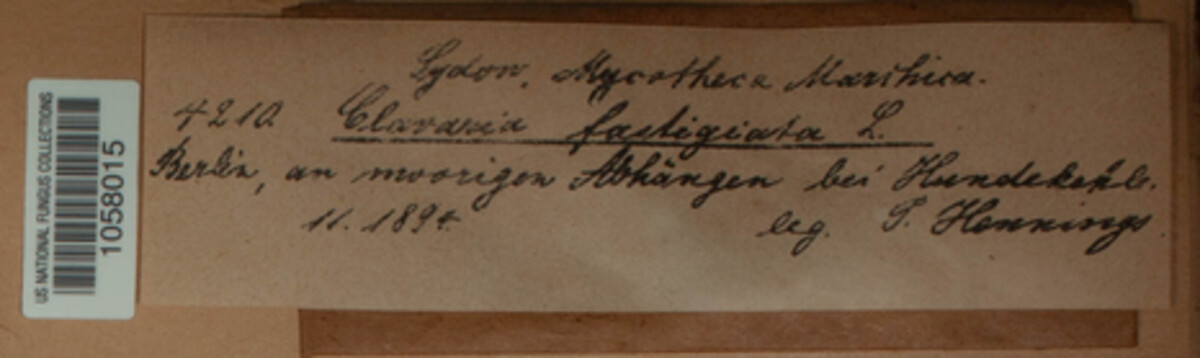 US NATIONAL FUNGUS COLLECTIONS
1058015
Sydow, Mycotheca Marchica.
4210. Clavaria fastigiata L.
Berlin, an moorigen Abhängen bei Hundekehle.
11. 1894. leg. P. Hennings.